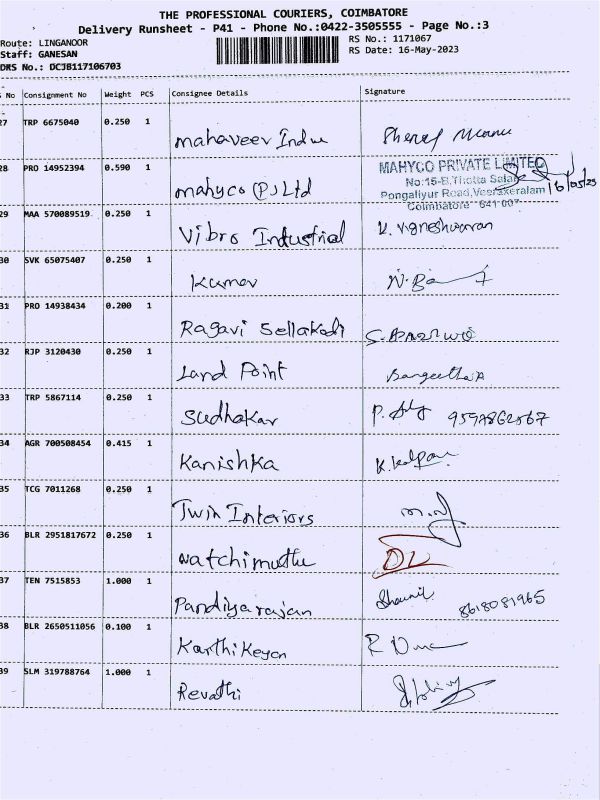 THE PROFESSIONAL COURIERS, COIMBATORE
Delivery Runsheet - P41 - Phone No.:0422-3505555 - Page No.:3
Route: LINGANOOR
RS No.: 1171067
Staff: GANESAN
RS Date: 16-May-2023
DRS No.: DCJB117106703
No Consignment No Weight PCS Consignee Details Signature
27 TRP 6675040 0.250 1
mahaveer
28 PRO 14952394 0.590 1
mahyco (P) Ltd
MAHYCO PRIVATE LIMITED
No:15-B,Thotta Salai
Pongaliyur Road,Veerakeralam
Coimbatore - 641 007
16/05/23
29 MAA 570089519 0.250 1
Vibro Industrial K. Vigneshwaran
30 SVK 65075407 0.250 1
Kumar
31 PRO 14938434 0.200 1
Ragavi
32 RJP 3120430 0.250 1
Land Point Sangeetha
33 TRP 5867114 0.250 1
Sudhakar
34 AGR 700508454 0.415 1
Kanishka K. Kalpana
35 TCG 7011268 0.250 1
Twin Interiors
36 BLR 2951817672 0.250 1
natchimuthu
37 TEN 7515853 1.000 1
Pandiyarajan 8618081965
38 BLR 2650511056 0.100 1
Karthikeyan
39 SLM 319788764 1.000 1
Revathi